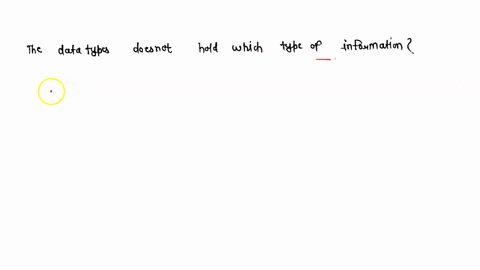 The data types doesnot hold which type of information?